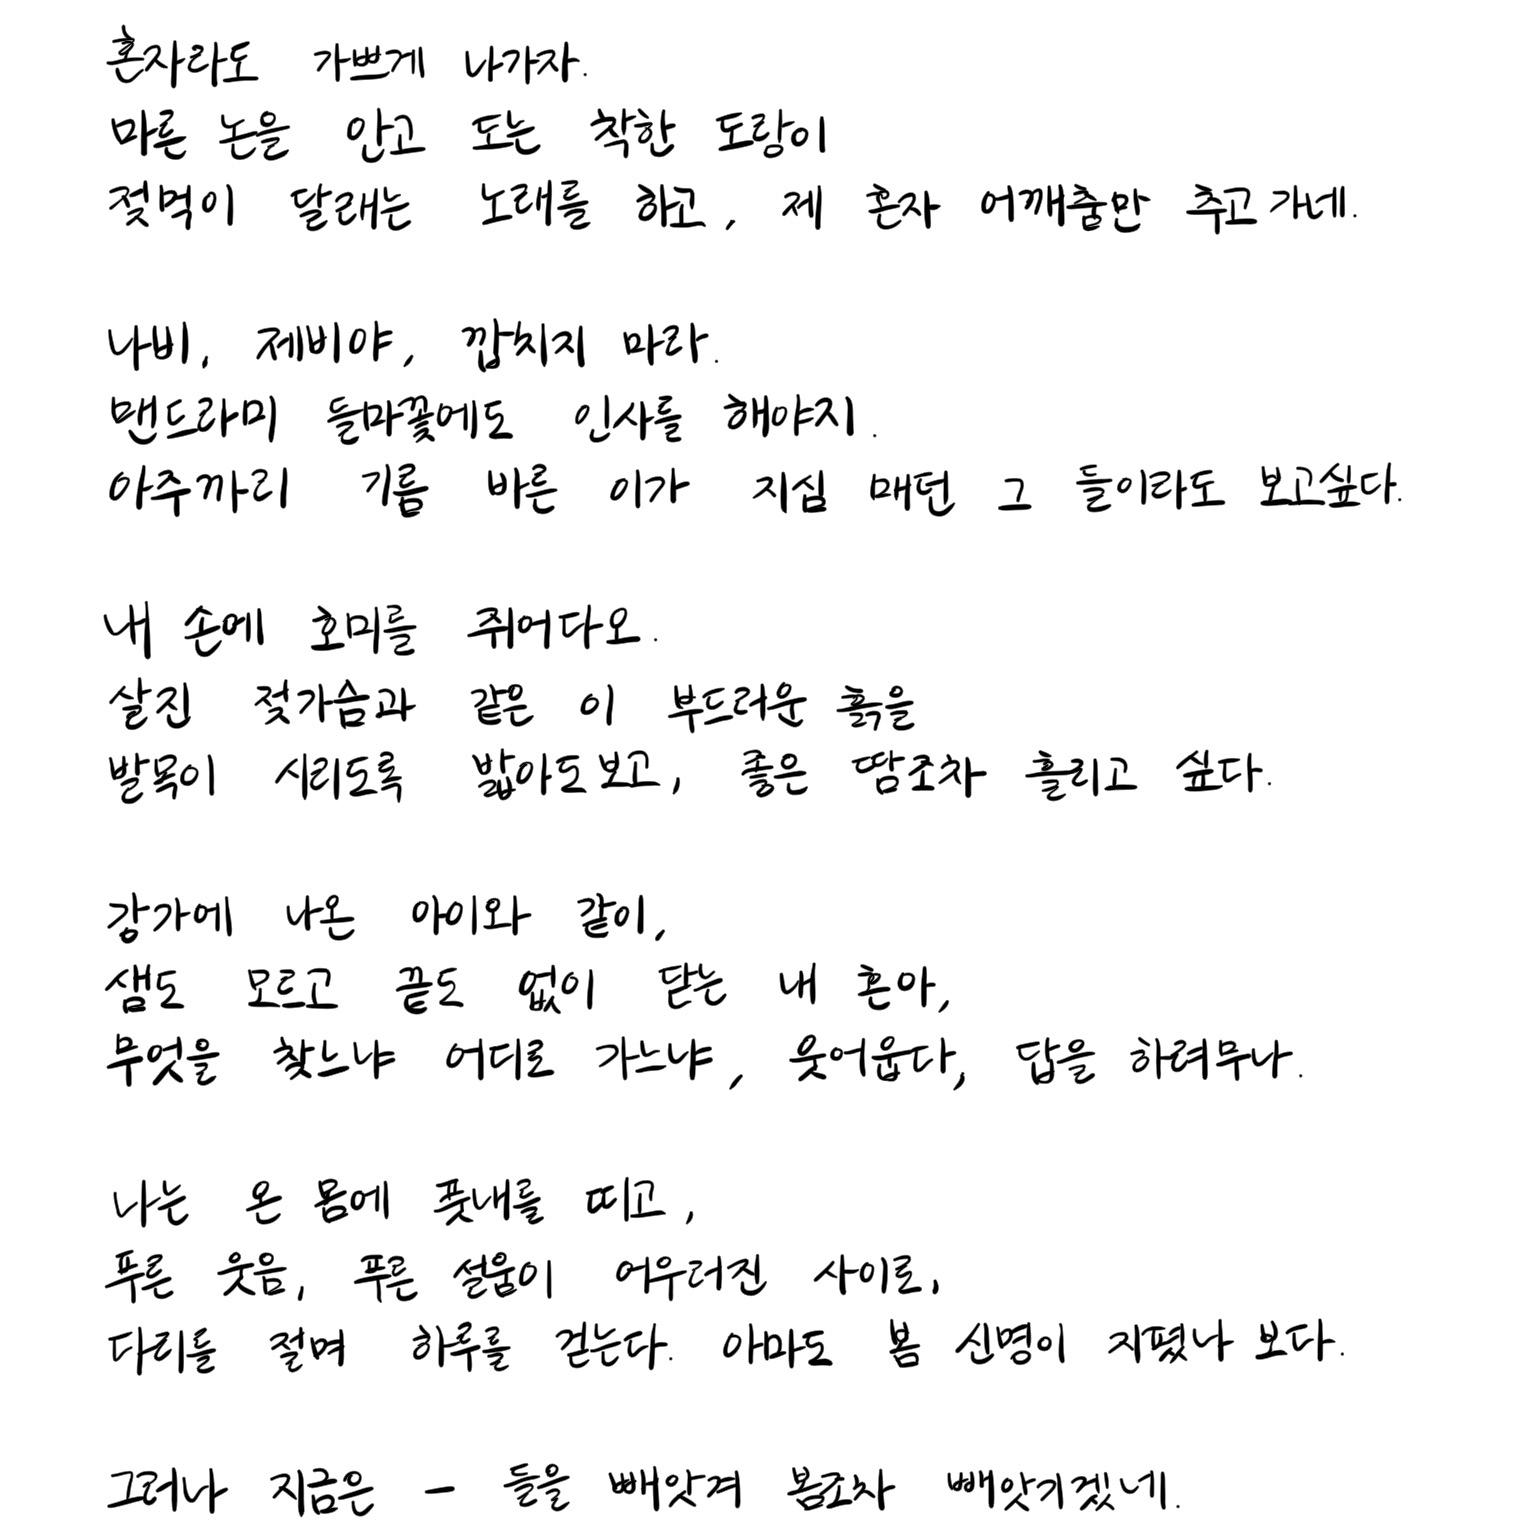 혼자라도 가쁘게 나가자.
마른 논을 안고 도는 착한 도랑이
젖먹이 달래는 노래를 하고, 제 혼자 어깨춤만 추고 가네.
나비, 제비야, 깝치지 마라.
맨드라미 들마꽃에도 인사를 해야지.
아주까리 기름 바른 이가 지심 매던 그 들이라도 보고싶다.
내 손에 호미를 쥐어다오.
살진 젖가슴과 같은 이 부드러운 흙을
발목이 시리도록 밟아도 보고, 좋은 땀조차 흘리고 싶다.
강가에 나온 아이와 같이,
샘도 모르고 끝도 없이 닫는 내 혼아,
무엇을 찾느냐 어디로 가느냐, 웃어웁다, 답을 하려무나.
나는 온 몸에 풋내를 띠고,
푸른 웃음, 푸른 설움이 어우러진 사이로,
다리를 절며 하루를 걷는다. 아마도 봄 신명이 지폈나 보다.
그러나 지금은 - 들을 빼앗겨 봄조차 빼앗기겠네.